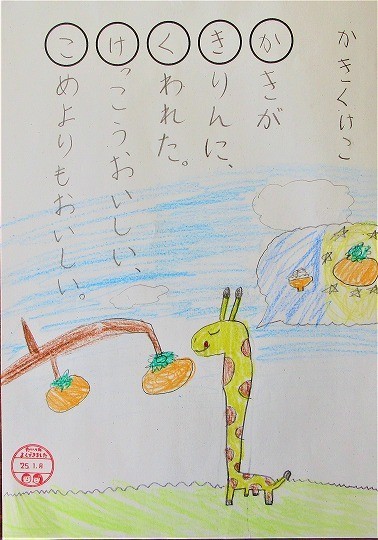 かきくけこ
かきが
きりんに、
くわれた。
けっこうおいしい、
こめよりもおいしい。
25.1.月